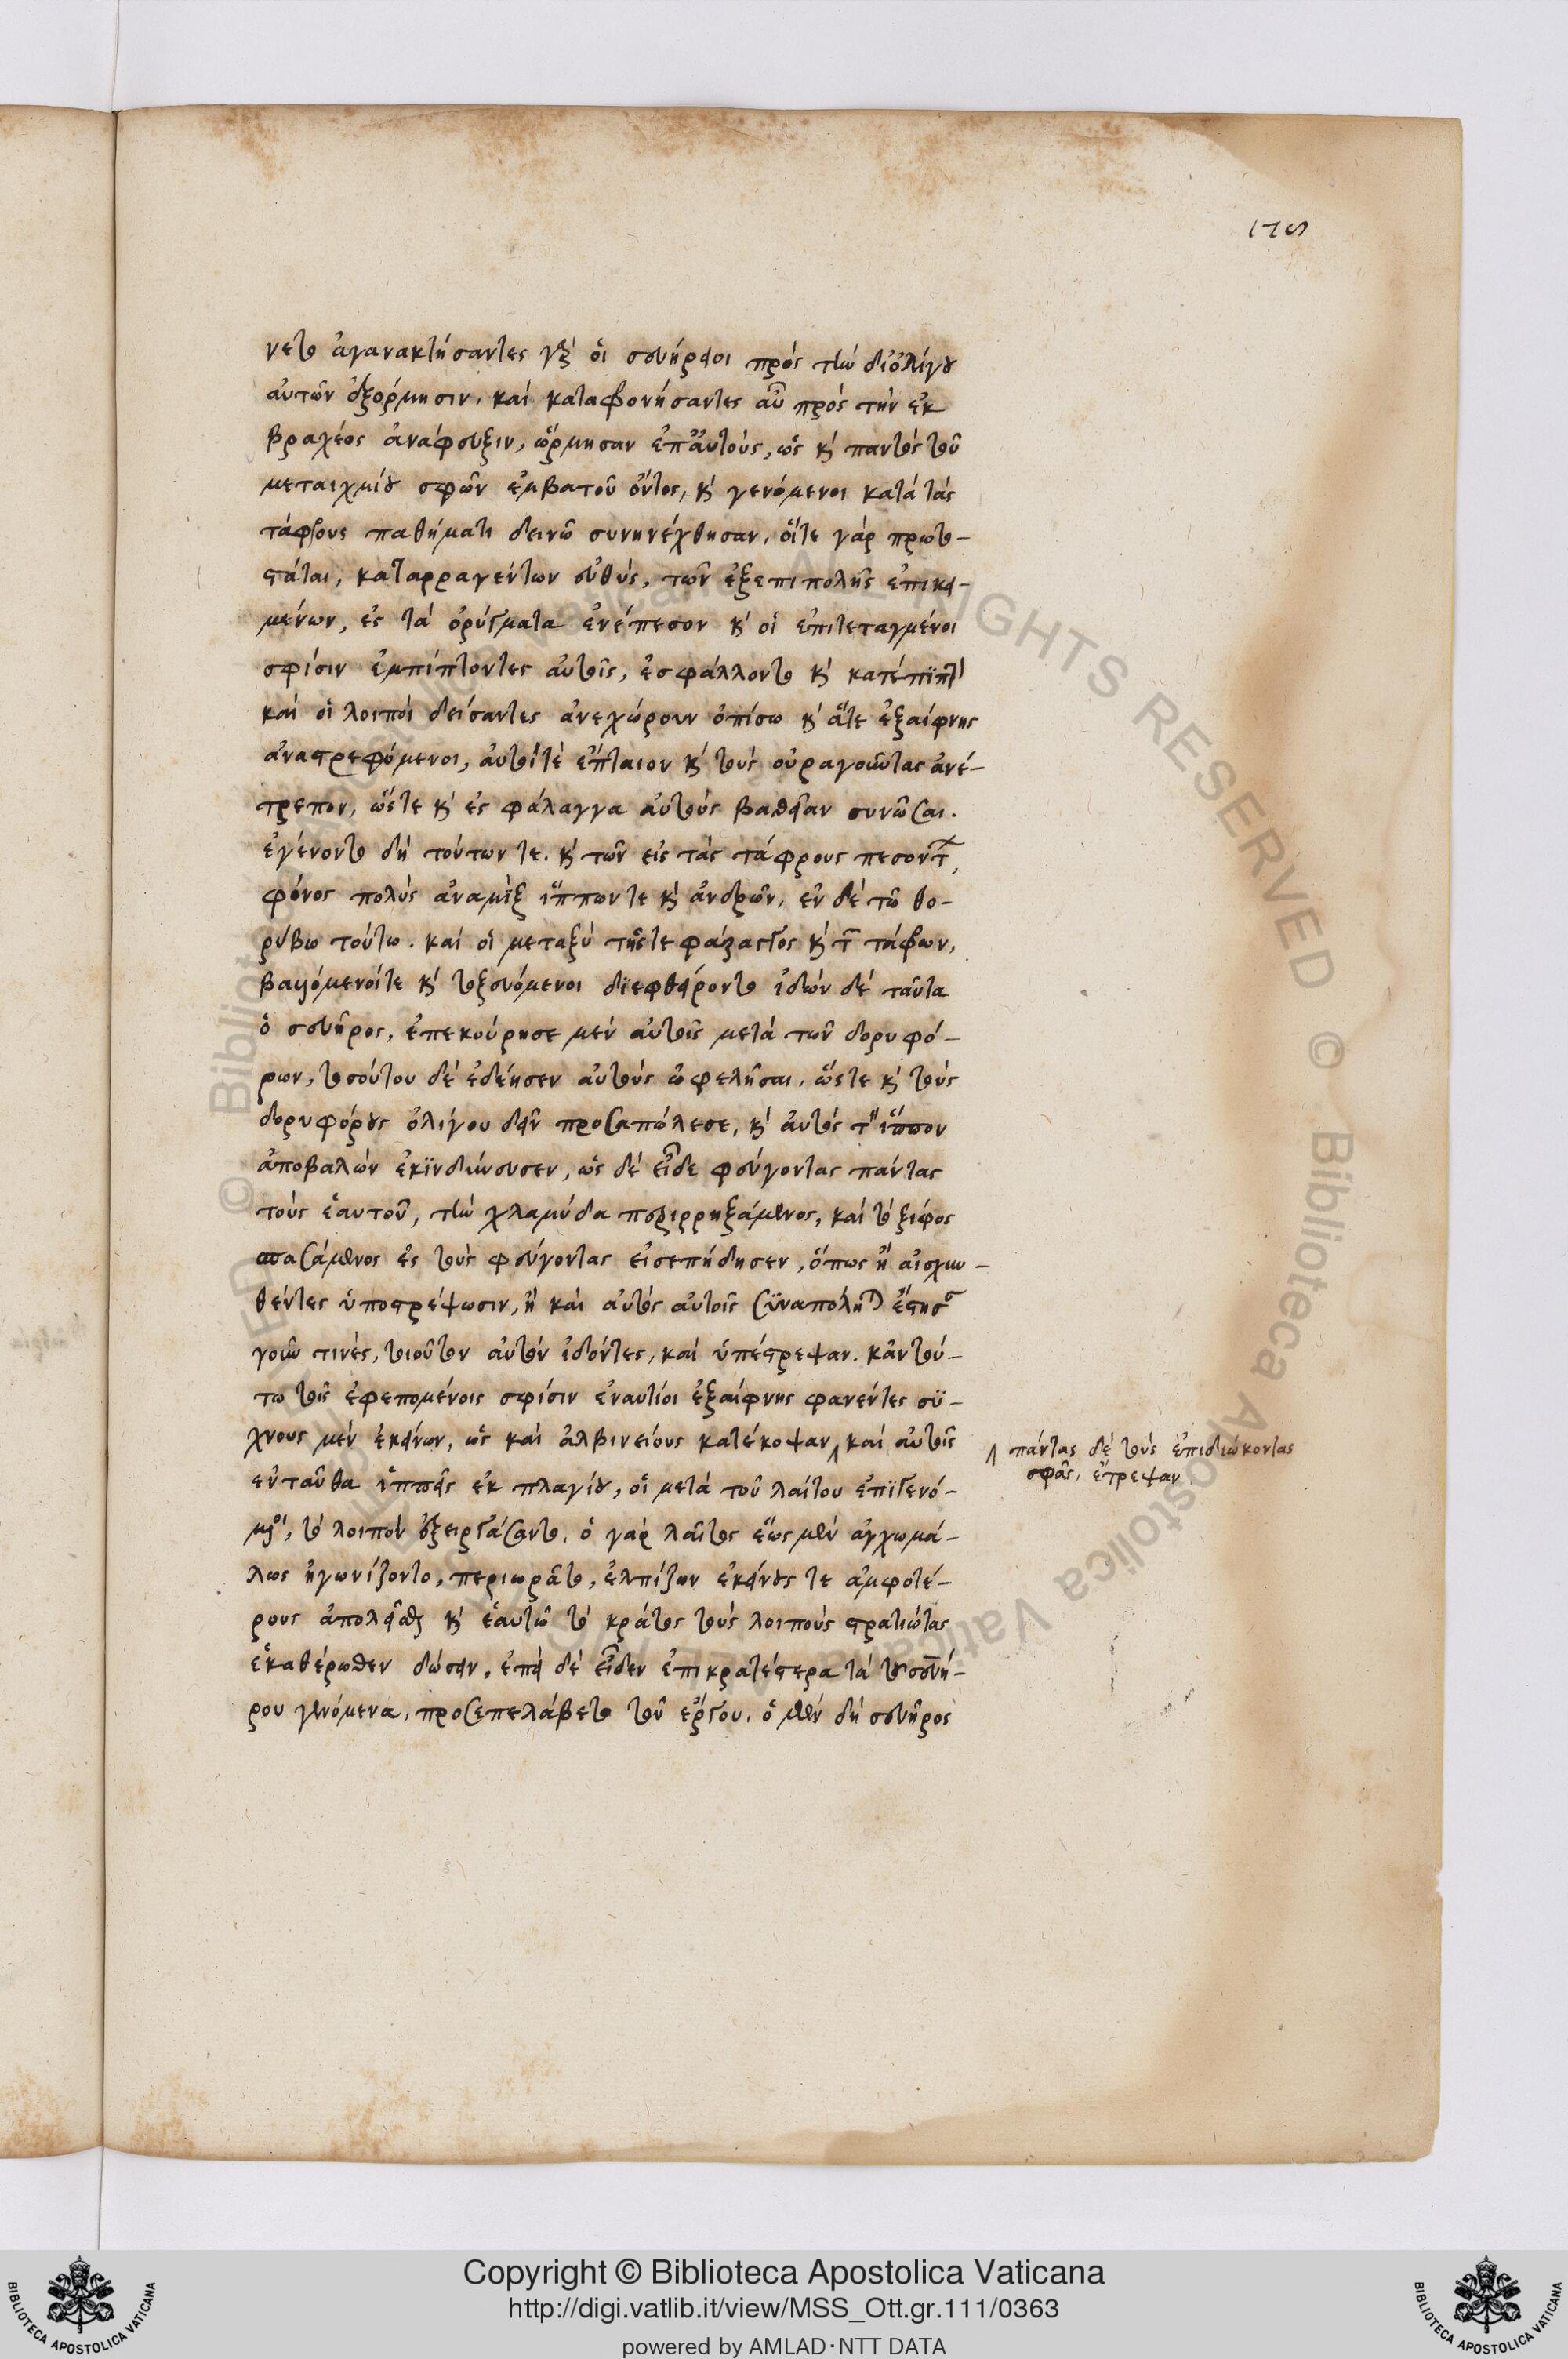 176
νετο ἀγανακτήσαντες γὰρ οἱ σευήρειοι πρὸς τὴν διολίγου
αὐτῶν ἐξόρμησιν, καὶ καταφρονήσαντες αὖ πρὸς τὴν ἐκ
βραχέος ἀνάφευξιν, ὥρμησαν ἐπ' αὐτοὺς, ὡς καὶ παντὸς τοῦ
μεταιχμίου σφῶν ἐμβατοῦ ὄντος, καὶ γενόμενοι κατὰ τὰς
τάφρους παθήματι δεινῶ συνηνέχθησαν, οἵτε γὰρ πρωτο-
στάται, καταρραγέντων εὐθὺς, τῶν ἐξεπιπολῆς ἐπικει-
μένων, ἐς τὰ ὀρύγματα ἐνέπεσον καὶ οἱ ἐπιτεταγμένοι
σφίσιν ἐμπίπτοντες αὐτοῖς, ἐσφάλλοντο καὶ κατέπιπτον
καὶ οἱ λοιποὶ δείσαντες ἀνεχώρουν ὀπίσω καὶ ἅτε ἐξαίφνης
ἀναστρεφόμενοι, αὐτοίτε ἔπταιον καὶ τοὺς οὐραγοῦντας ἀνέ-
τρεπον, ὥστε καὶ ἐς φάραγγα αὐτοὺς βαθεῖαν συνῶσαι.
ἐγένοντο δὴ τούτων τε. καὶ τῶν εἰς τὰς τάφρους πεσόντων,
φόνος πολὺς ἀναμὶξ ἵππων τε καὶ ἀνδρῶν, ἐν δὲ τῶ θο-
ρύβω τούτω. καὶ οἱ μεταξὺ τῆςτε φάραγγος καὶ τῶν τάφρων,
βαλλόμενοίτε καὶ τοξευόμενοι διεφθείροντο ἰδὼν δὲ ταῦτα
ὁ σευῆρος, ἐπεκούρησε μὲν αὐτοῖς μετὰ τῶν δορυφό-
ρων, τοσούτου δὲ ἐδέησεν αὐτοὺς ὠφελῆσαι, ὥστε καὶ τοὺς
δορυφόρους ὀλίγου δεῖν προσαπώλεσε, καὶ αὐτὸς τὸν ἵππον
ἀποβαλὼν ἐκινδύνευσεν, ὡς δὲ εἶδε φεύγοντας πάντας
τοὺς ἑαυτοῦ, τὴν χλαμύδα περιρρηξάμενος, καὶ τὸ ξίφος
σπασάμενος ἐς τοὺς φεύγοντας εἰσεπήδησεν, ὅπως ἢ αἰσχυν-
θέντες ὑποστρέψωσιν, ἢ καὶ αὐτὸς αὐτοῖς συναπόληται ἔστησαν
γοῦν τινὲς, τοιοῦτον αὐτὸν ἰδόντες, καὶ ὑπέστρεψαν. κἀν τού-
τω τοῖς ἐφεπομένοις σφίσιν ἐναντίοι ἐξαίφνης φανέντες συ-
χνους μὲν ἐκείνων, ὡς καὶ ἀλβινείους κατέκοψαν, καὶ αὐτοῖς
ἐνταῦθα ἱππεῖς ἐκ πλαγίου, οἱ μετὰ τοῦ λαίτου ἐπιγενό-
μενοι, τὸ λοιπὸν ἐξειργάσαντο. ὁ γὰρ λαῖτος ἕως μὲν ἀγχωμά-
λως ἠγωνίζοντο, περιωρᾶτο, ἐλπίζων ἐκείνους τε ἀμφοτέ-
ρους ἀπολεῖσθαι καὶ ἑαυτῶ τὸ κράτος τοὺς λοιποὺς στρατιώτας
ἑκατέρωθεν δώσειν, ἐπεὶ δὲ εἶδεν ἐπικρατέστερα τὰ τοῦ σευή-
ρου γενόμενα, προσεπελάβετο τοῦ ἔργου. ὁ μὲν δὴ σευῆρος
πάντας δὲ τοὺς ἐπιδιώκοντας
σφᾶς, ἔτρεψαν
Copyright © Biblioteca Apostolica Vaticana
http://digi.vatlib.it/view/MSS_Ott.gr.111/0363
powered by AMLAD·NTT DATA